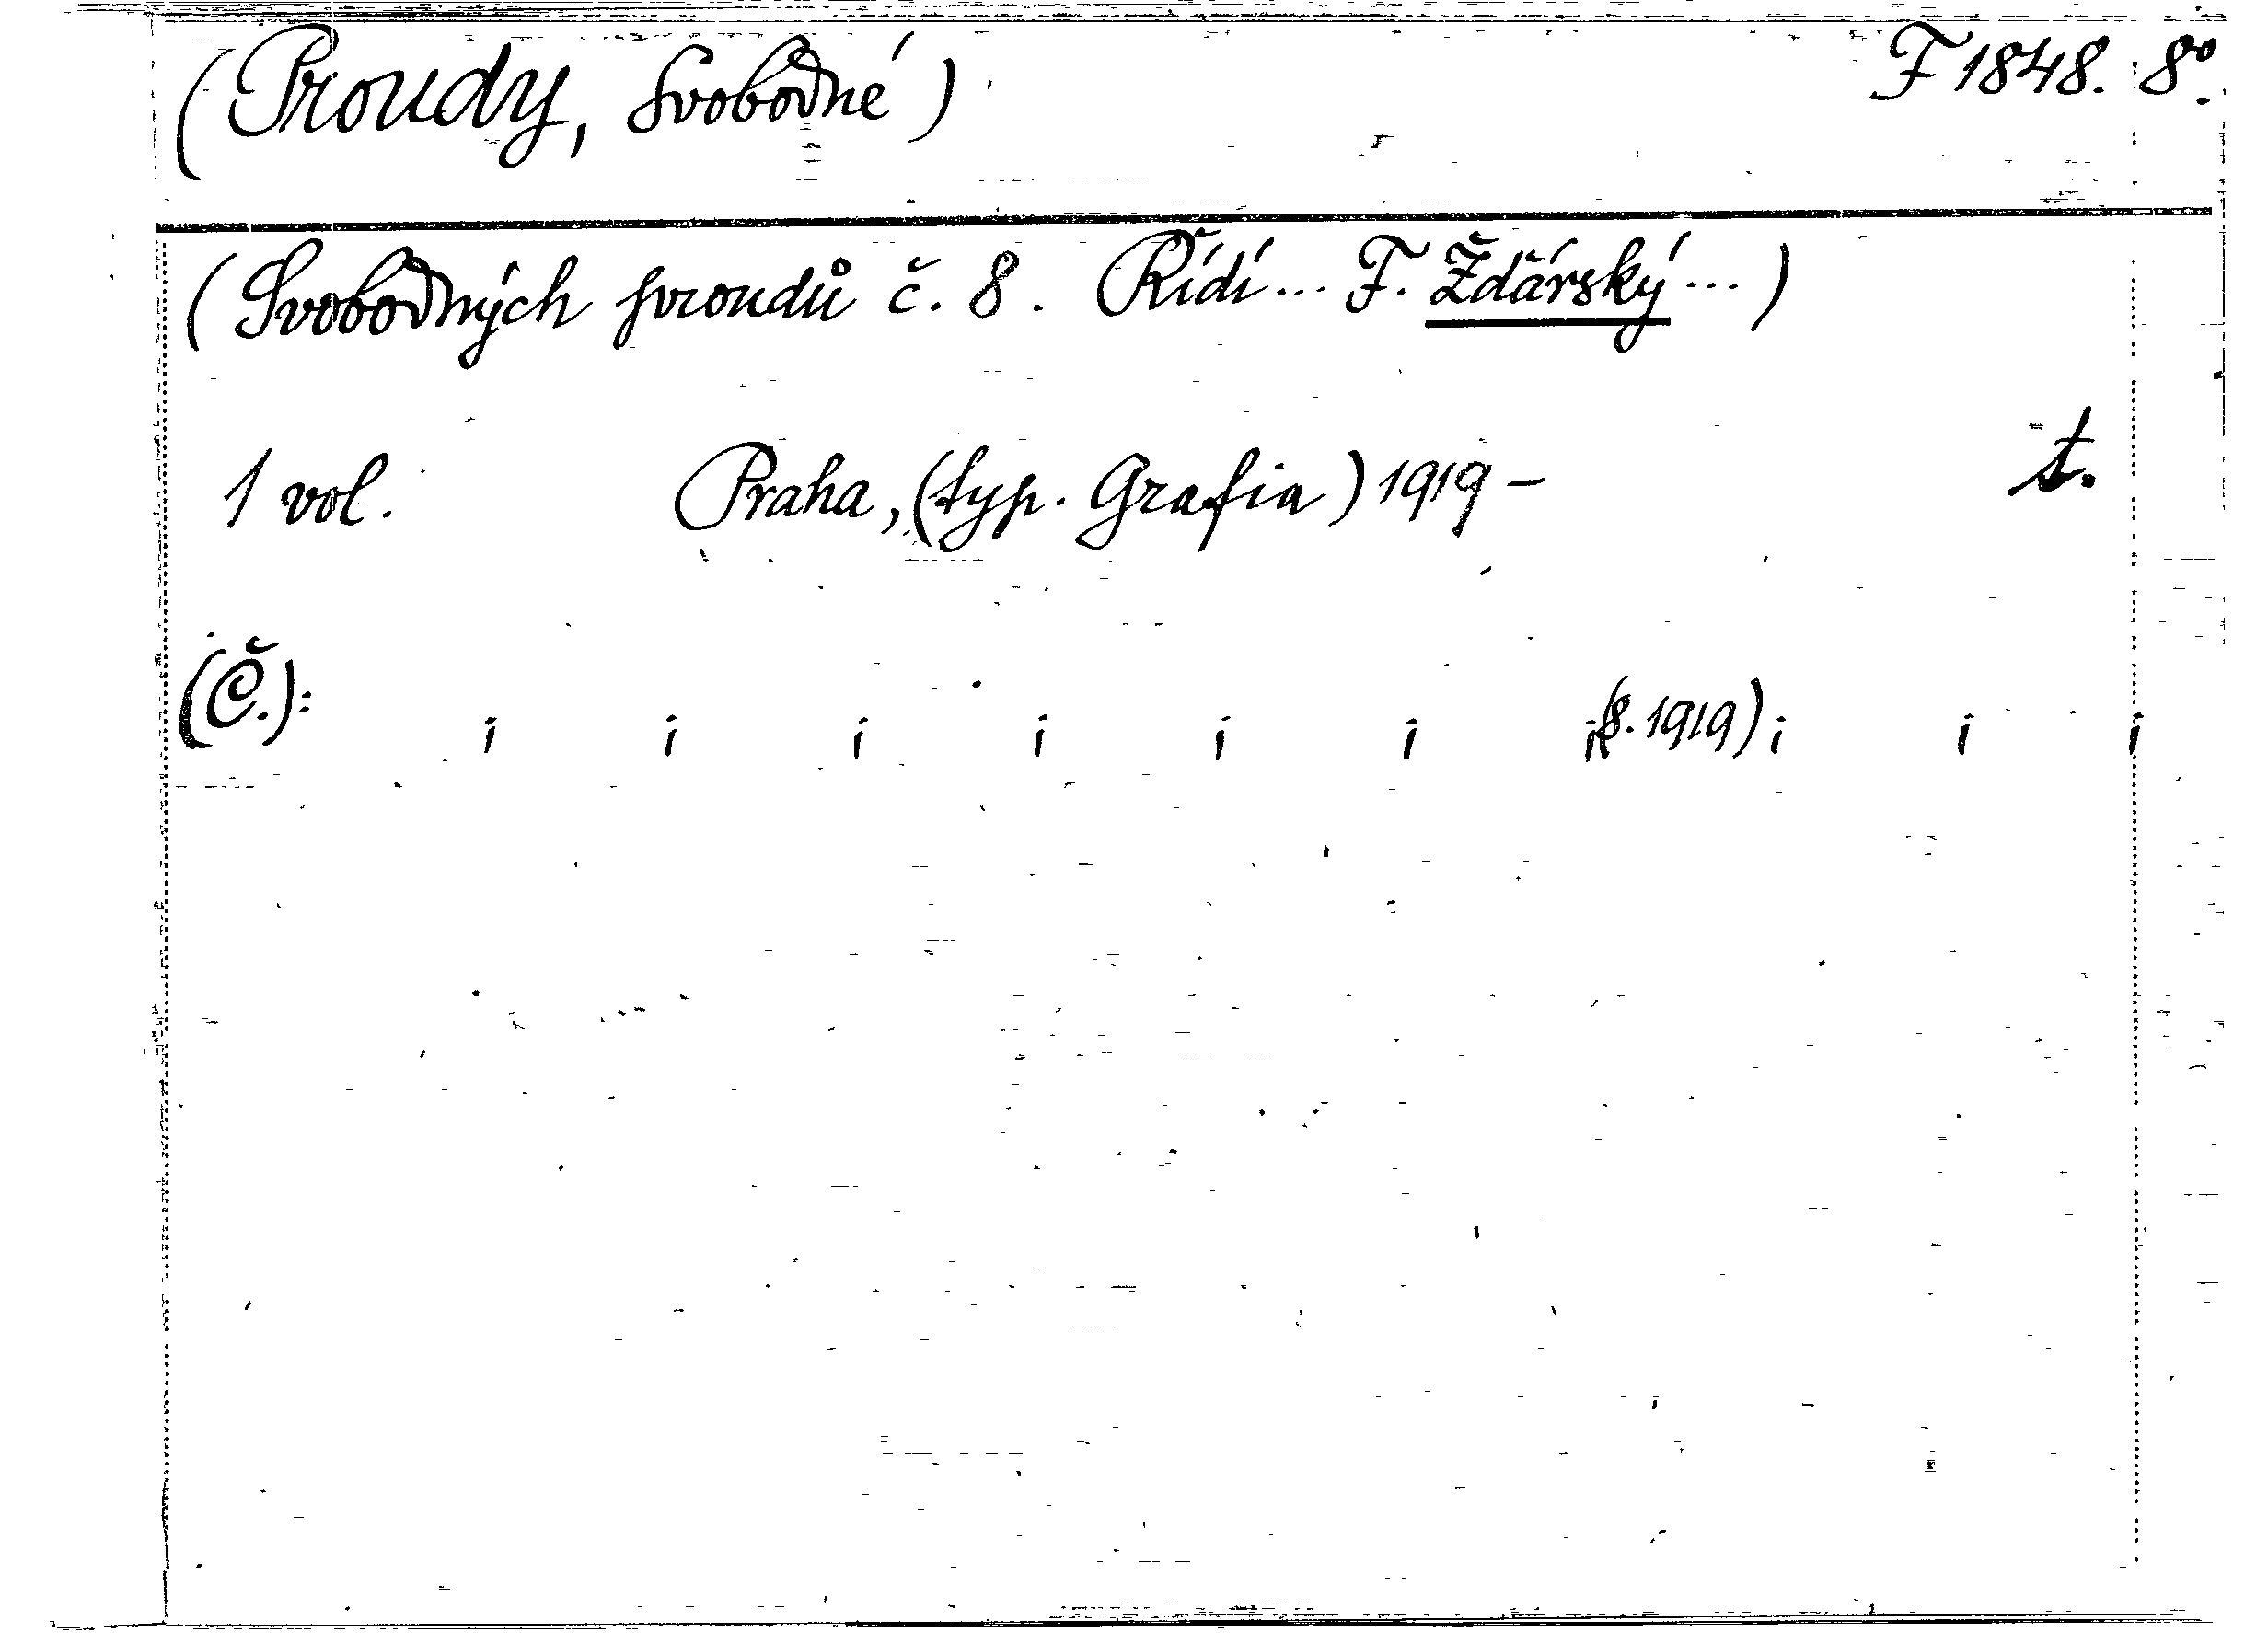 (Proudy, Svobodné) F 1848. 8º.
(Svobodných proudů č. 8. Řídí... F. Žďárský...)
1 vol. Praha, (typ. Grafia) 1919 - t.
(Č.): ; ; ; ; ; ; ;(8. 1919) ; ; ;